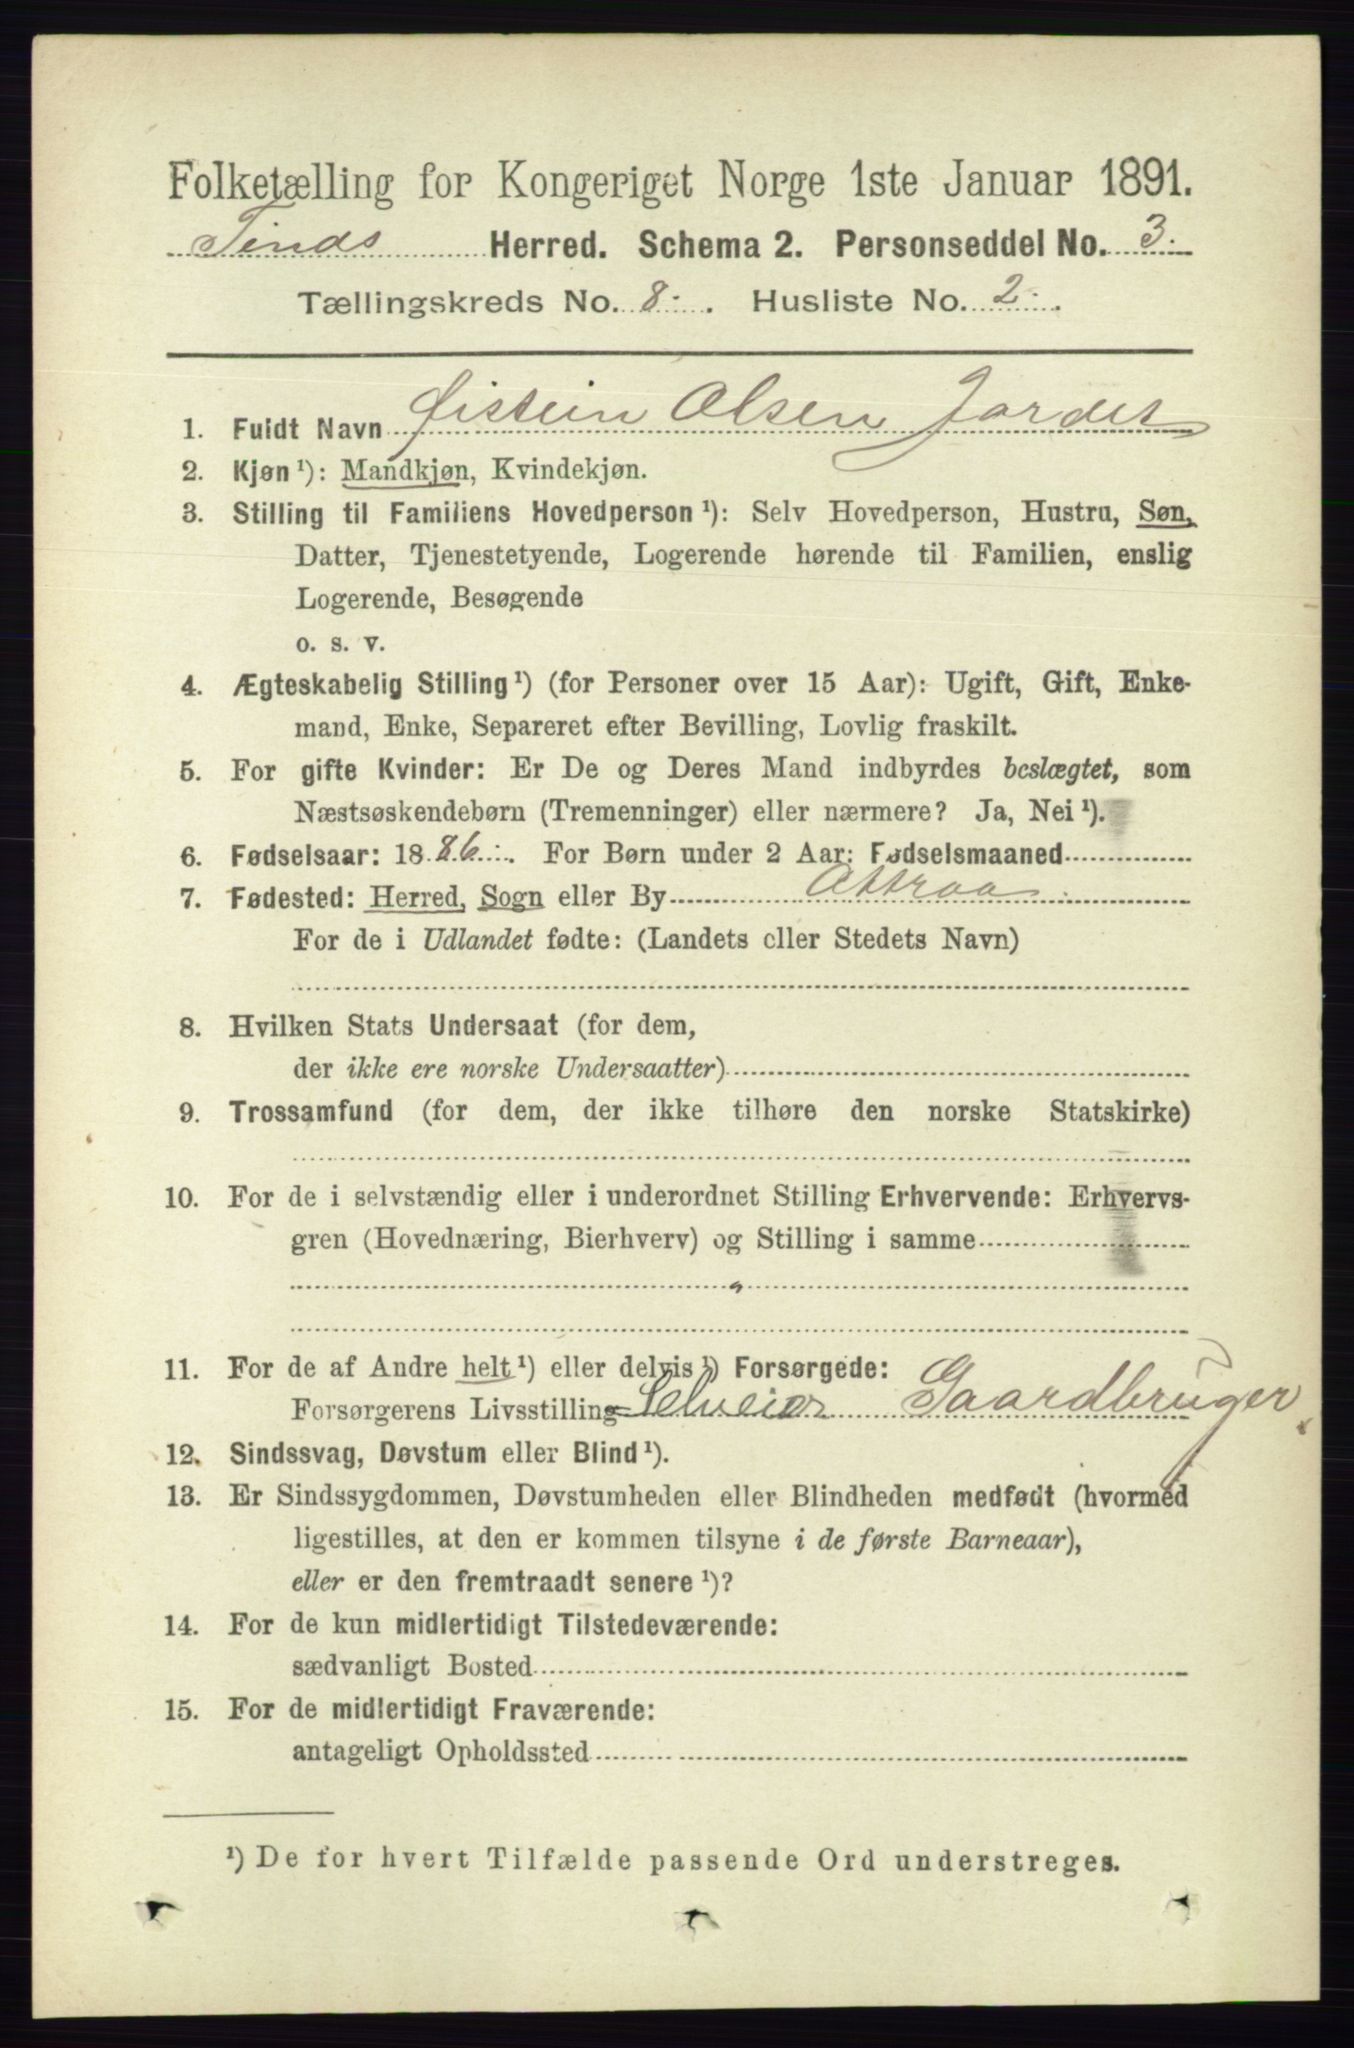 Folketælling for Kongeriget Norge 1ste Januar 1891.
Tinds Herred. Schema 2. Personseddel No. 3.
Tællingskreds No. 8. Husliste No. 2.
1. Fuldt Navn Øistein Olsen Jordet
2. Kjøn¹): Mandkjøn, Kvindekjøn.
3. Stilling til Familiens Hovedperson¹): Selv Hovedperson, Hustru, Søn,
Datter, Tjenestetyende, Logerende hørende til Familien, enslig
Logerende, Besøgende
o. s. v.
4. Ægteskabelig Stilling¹) (for Personer over 15 Aar): Ugift, Gift, Enke-
mand, Enke, Separeret efter Bevilling, Lovlig fraskilt.
5. For gifte Kvinder: Er De og Deres Mand indbyrdes beslægtet, som
Næstsøskendebørn (Tremenninger) eller nærmere? Ja, Nei¹).
6. Fødselsaar: 1886. For Børn under 2 Aar: Fødselsmaaned
7. Fødested: Herred, Sogn eller By Attraa
For de i Udlandet fødte: (Landets eller Stedets Navn)
8. Hvilken Stats Undersaat (for dem,
der ikke ere norske Undersaatter)
9. Trossamfund (for dem, der ikke tilhøre den norske Statskirke)
10. For de i selvstændig eller i underordnet Stilling Erhvervende: Erhvervs-
gren (Hovednæring, Bierhverv) og Stilling i samme
11. For de af Andre helt¹) eller delvis¹) Forsørgede:
Forsørgerens Livsstilling Selveier Gaardbruger
12. Sindssvag, Døvstum eller Blind¹).
13. Er Sindssygdommen, Døvstumheden eller Blindheden medfødt (hvormed
ligestilles, at den er kommen tilsyne i de første Barneaar),
eller er den fremtraadt senere¹)?
14. For de kun midlertidigt Tilstedeværende:
sædvanligt Bosted
15. For de midlertidigt Fraværende:
antageligt Opholdssted
¹) De for hvert Tilfælde passende Ord understreges.